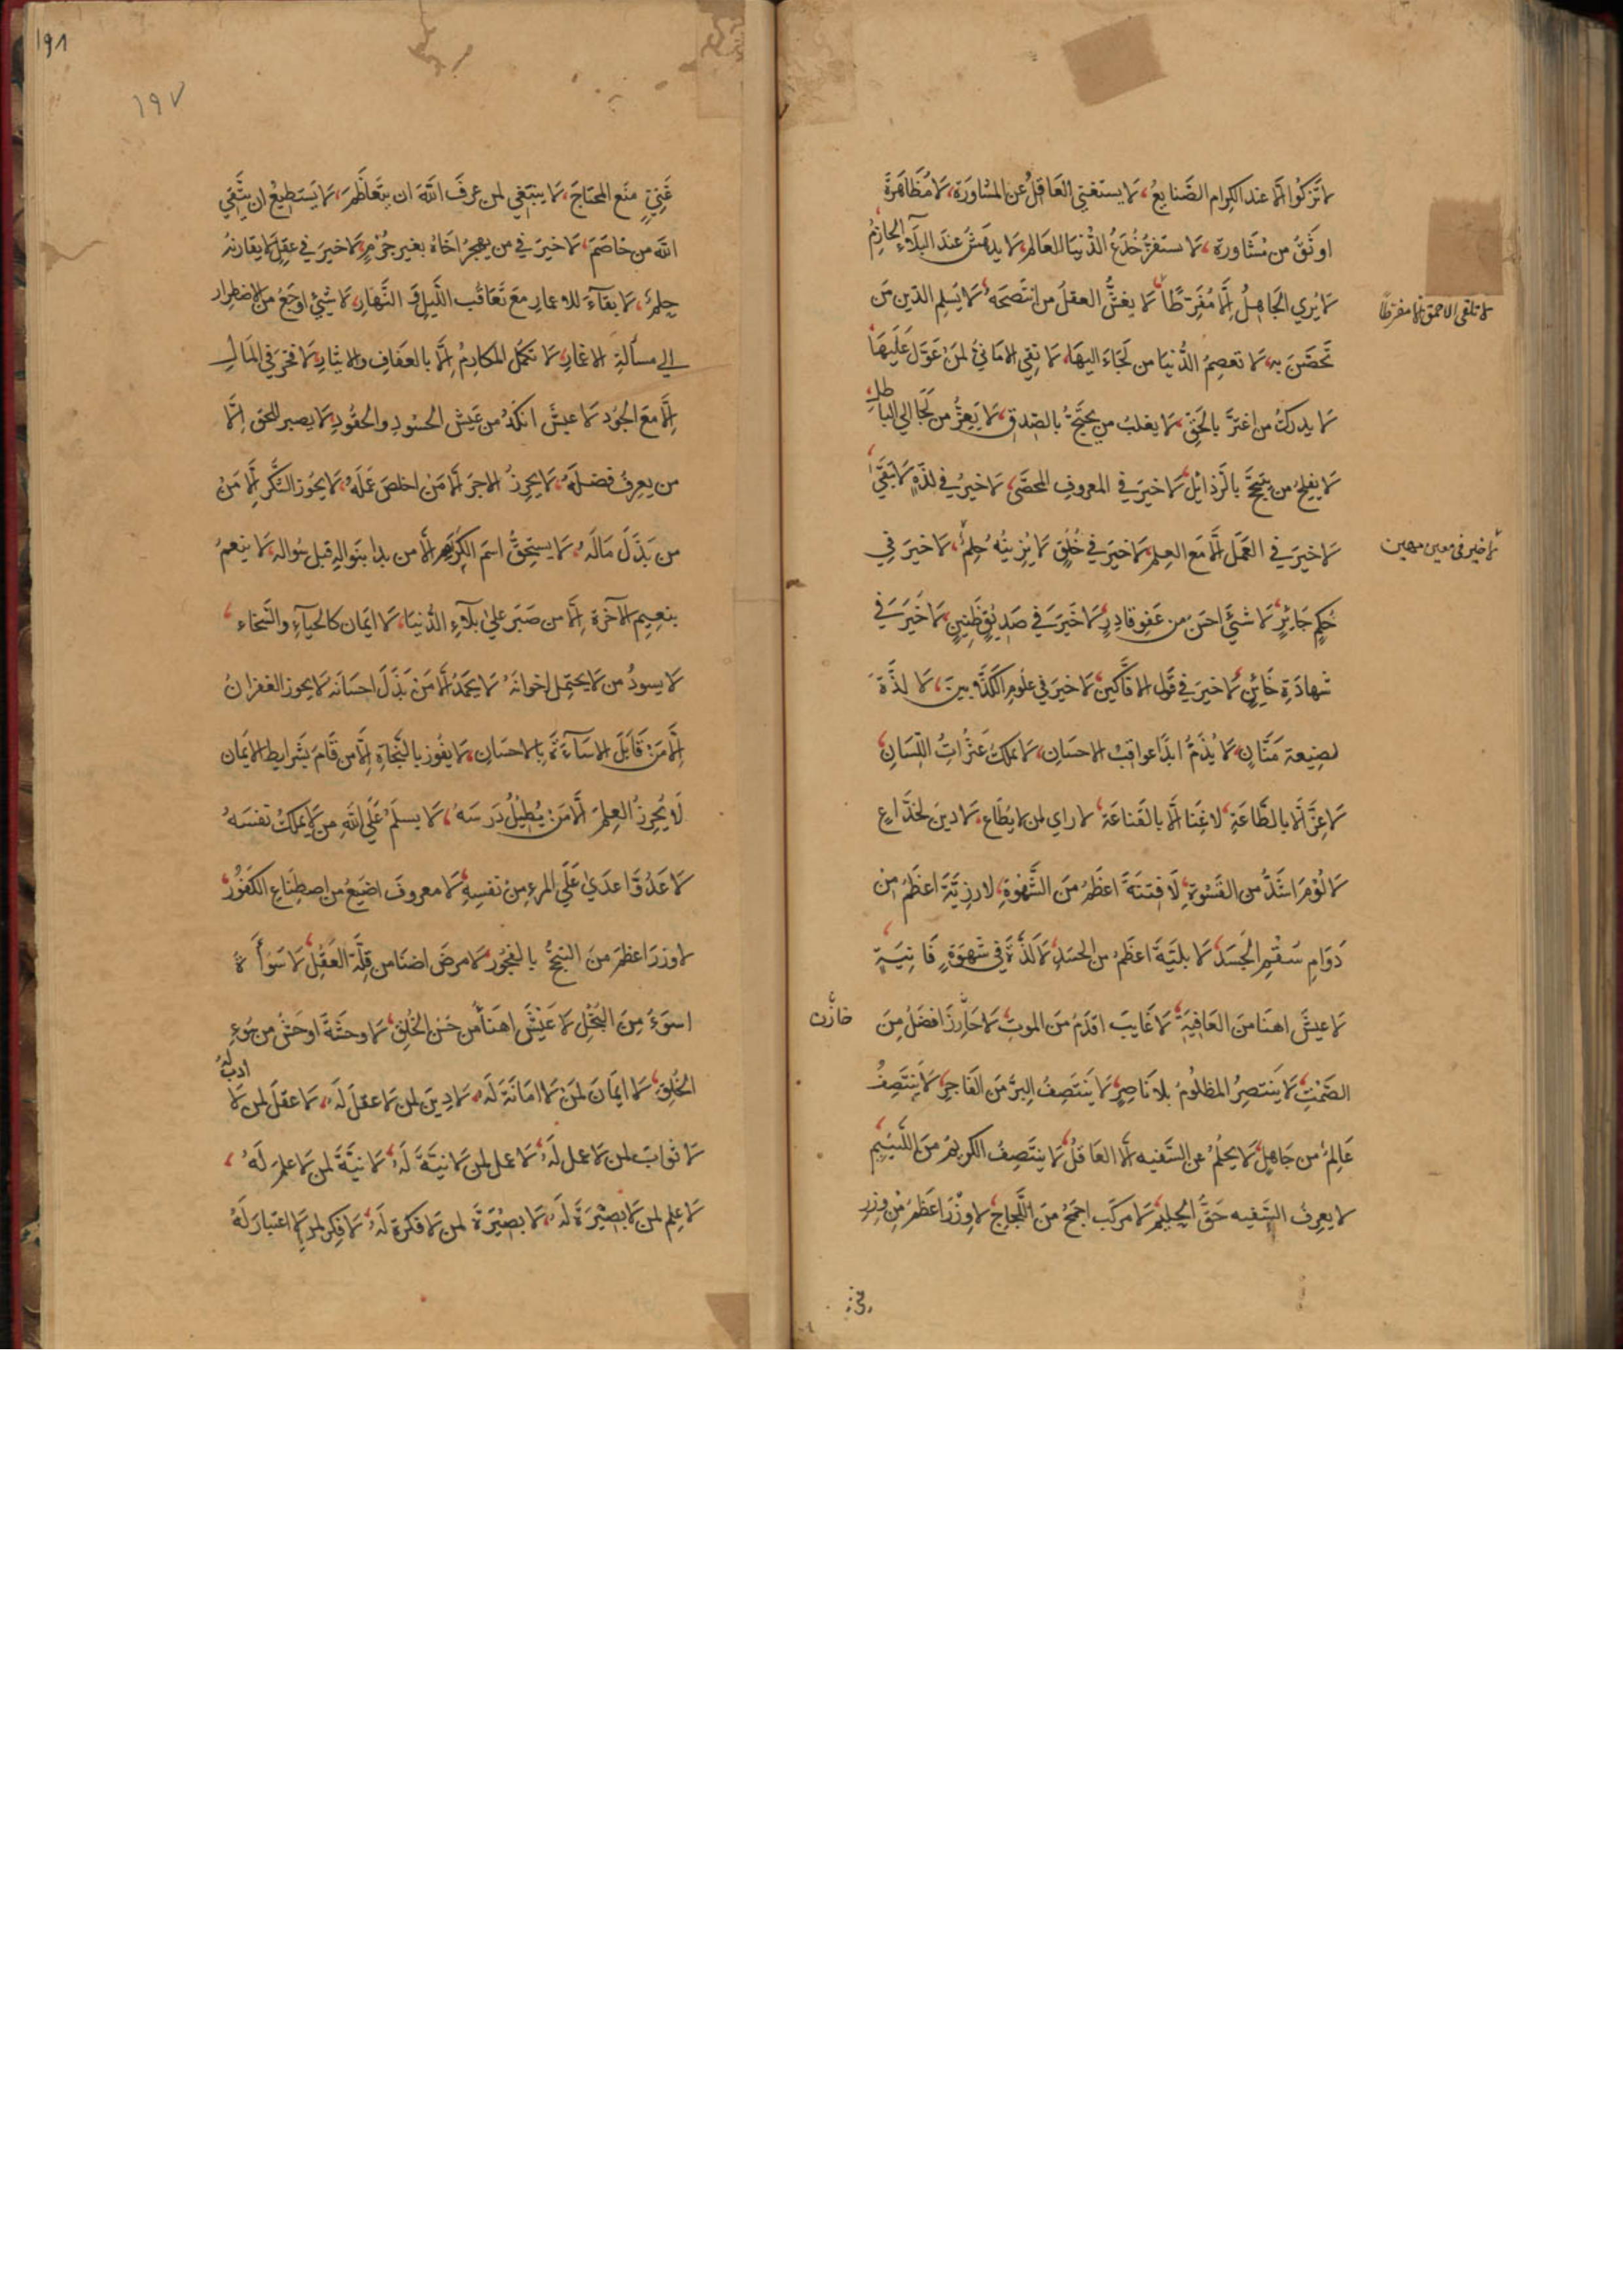 لا تزكوا الّا عند الكرام الصّنايعُ، لا يستغني العَاقلُ عن المشاورَة، لا مُظَاهَرةَ
اوثَقُ من مُشَاورة، لا يستفزّ خُدَعُ الدُّنيَا العَالم، لا يدهَشُ عندَ البَلآءِ الحازِمُ
لا يُري الجَاهِلُ اِلَّا مُفَرّطًا، لا يغشُّ العقلُ من انتَصَحَهُ، لا يُسلِم الدّين مَن
لا تلقي الاحمق الا مفرطًا
تَحَصَّنَ بهِ، لا تعصِمُ الدُّنيَا من لَجَاءَ اليهَا، لا تفي الامَانيُّ لمَنْ عَوَّلَ عَلَيهَا
لا يدركُ من اعتزَّ بالحَقِّ، لا يغلبُ من يحتَجُّ بالصّدقِ، لا يَعِزُّ من لَجَا الي الباطِلِ
لا يفلِحُ من يتبجّحَ بالرَّذائل، لا خيرَ في المعروفِ المُحصَّي، لا خيرَ في لذّةٍ لا تَبقَي
لا خيرَ في العَمَل الّا مَعَ العِلمِ، لا خيرَ في خُلُقٍ لا يُزينُهُ حِلمٌ، لا خيرَ في
لا خير في معين مهين
حُكمِ جَائِرٍ، لا شيَّ احسَن من عَفوِ قادِرٍ، لا خَيرَ في صَديقٍ ظَنِينٍ، لا خَيرَ في
شهادَةِ خَائِنٍ، لا خيرَ في قول الافّاكينَ، لا خيرَ في علُومِ الكذَّابينَ، لا لذّةَ
لصنيعة مَنّانٍ، لا يُذَمُّ ابدًا عواقبُ الاحسَانِ، لا يملكُ عَثراتُ اللِّسَانِ
لا عِزَّ الّا بالطَّاعَةِ، لا غِنَا الّا بالقَناعَة، لا راي لمن لا يُطَاع، لا دينَ لخَدّاعٍ
لا لُؤمَ اشَدُّ من القَسْوَةِ، لا فِتنَةَ اعظَمُ منَ الشّهوةِ، لا رزيّةَ اعظَمُ من
دَوَامِ سُقْمِ الجَسَدِ، لا بليّةَ اعظَمُ من الحسَدِ، لا لَذّةَ في شَهوَةٍ فَانِيَةٍ
لا عيشَ اهنَا منَ العَافِيَةِ، لا غَايبَ اقدَمُ منَ الموتِ، لا حَارِزَ افضَلُ مِنَ
خازن
الصَّمْتِ، لا يَنتصِرُ المظلُومُ بلا نَاصِرٍ، لا يَنتَصِفُ البَرّ منَ الفَاجِرِ، لا يَنتَصِفُ
عَالِمٌ من جَاهِلٍ، لا يحلُمُ عن السّفيه الّا العَاقلُ، لا ينتَصِفُ الكريمُ منَ اللّئيمِ
لا يعرِفُ السَّفيه حَقَّ الحليمِ، لا مركَب اجمَحُ منَ اللَّجاجِ، لا وِزْرَ اعظَمُ مِنْ وِزرِ
١٩٨
١٩٧
غَنيٍّ منَع المحتَاجَ، لا ينبَغي لمن عرفَ اللهَ ان يتَعاظَمَ، لا يَستَطِيعُ ان يتّقي
اللهَ من خاصَمَ، لا خيرَ في من يهجرُ اخَاهُ بغيرِ جُرْمٍ، لا خيرَ في عقلٍ لا يقارنهُ
حِلمٌ، لا بقآءَ للاعمارِ معَ تَعَاقُب اللَّيلِ و النّهَارِ، لا شيَ اوجَعُ منَ الاضطِرار
الي مسألةِ الاغمارِ، لا تكمُل المكارِمُ اِلّا بالعَفافِ والايثارِ، لا فخرَ في المَالِ
اِلّا معَ الجُود، لا عيشَ انكدُ من عَيش الحسُودِ والحقُودِ، لا يصبر للحق الّا
من يعرفُ فضلَهُ، لا يحرِزُ الاجرَ الّا مَن اخلصَ عَمَلَهُ، لا يحُوز الشّكرَ الّا مَن
من بَذَلَ مَالَهُ، لا يستحِقُّ اسمَ الكرَمِ الّا من بدا بنوالِهِ قبل سُوالِهِ، لا ينعمُ
بنعيمِ الآخرةِ اِلّا من صَبَر علي بَلآءِ الدُّنيَا، لا ايمَان كالحيآءِ والسَّخاء،
لا يسودُ من لا يحتمِل اخوانَهُ، لا يحمَدُ الّا مَنْ بَذَلَ احسَانَهُ، لا يحوز الغفرانُ
اِلّا مَنْ قَابَلَ الاسآءَةَ بِالاحسَانِ، لا يفُوز بالنّجَاةِ اِلّا من قَامَ بشَرايطِ الايمَان
لَا يُحرِزُ العِلمَ الّا مَن يُطيلُ دَرسَهُ، لا يسلَمُ عَلَي اللهِ من لا يملكُ نفسَهُ
لا عَدُوَّ اعدَي عَلَي المرءِ مِنْ نَفسِهِ، لا معروفَ اضيَعُ من اصطِناعِ الكفُورِ
لا وزرَ اعظمَ منَ التبجُّحِ بالفجُور، لا مرضَ اضنَا من قِلّة العَقْلِ، لا سَوأَةَ
اسوَءَ مِنَ البُخْلِ، لا عَيْشَ اهنَأُ من حُسنِ الخُلقِ، لا وحشَةَ اوحَشُ من سُوءِ
الخُلقِ، لا ايمَانَ لمَنْ لا امَانَةَ لَهُ، لا دِينَ لمن لا عقلَ لَهُ، لا عقلَ لمن لا ادبَ لَهُ
لا ثوابَ لمن لا عمل لَهُ، لا عمل لمن لا نيّةَ لَهُ، لا نيّةَ لمن لا علمَ لَهُ،
لا علم لمن لا بصيْرَةَ لَهُ، لا بصيْرَةَ لمن لا فكرةَ لَهُ، لا فِكر لمن لا اعتبارَ لَهُ